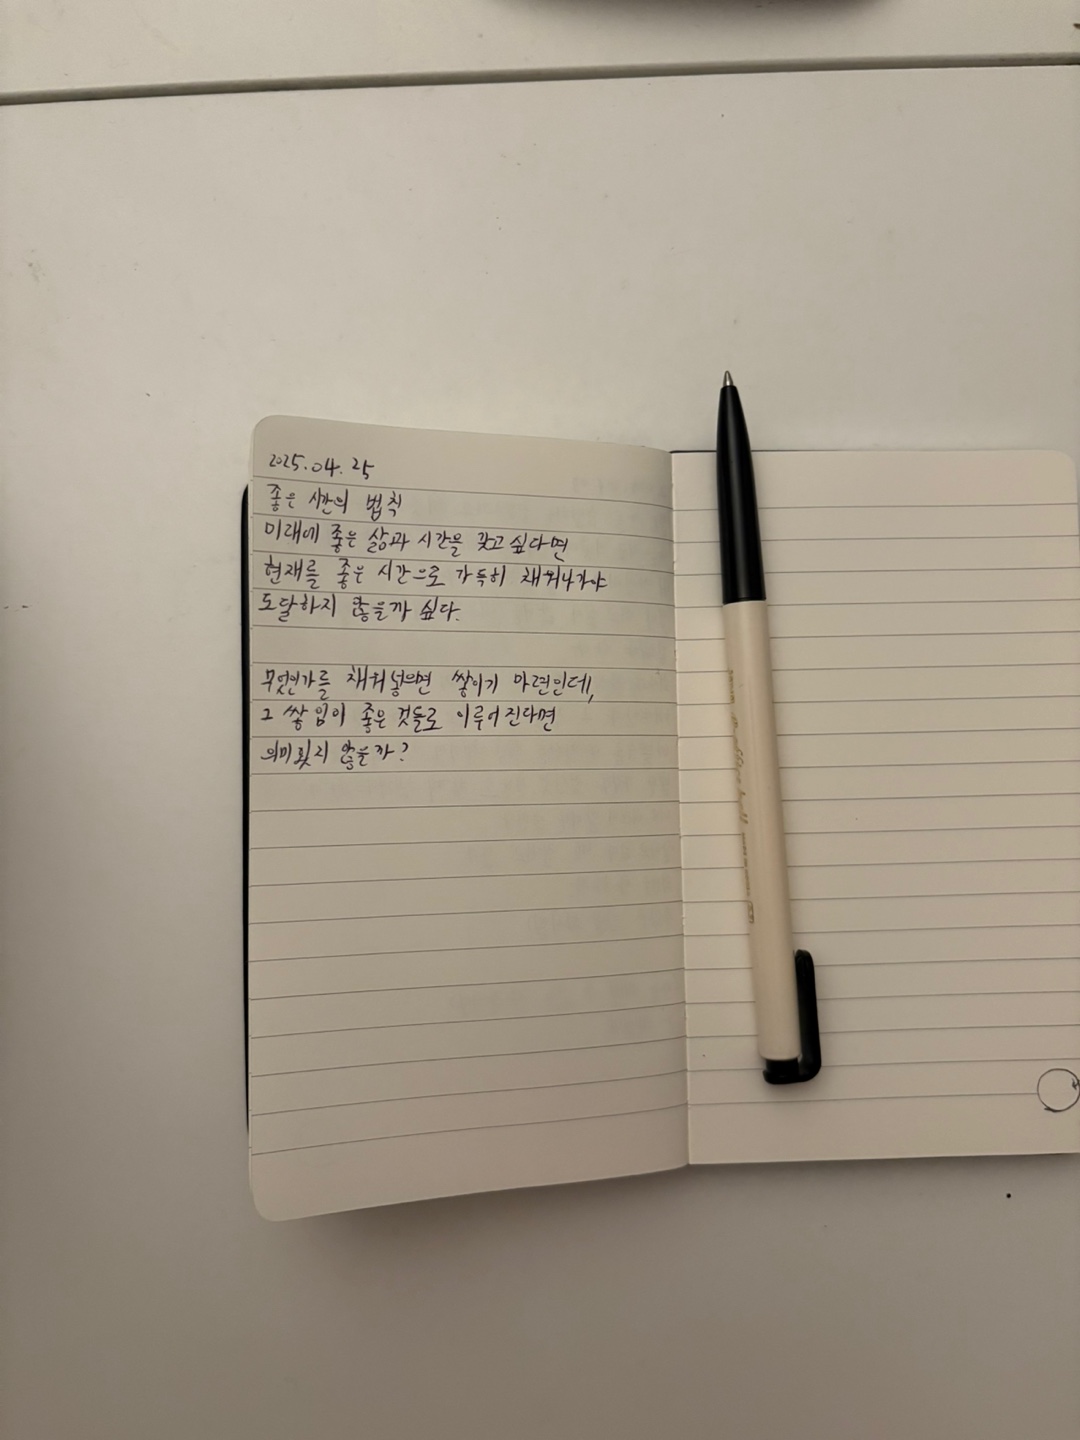 2025.04.25
좋은 시간의 법칙
미래에 좋은 삶과 시간을 갖고 싶다면
현재를 좋은 시간으로 가득히 채워나가야
도달하지 않을까 싶다.
무엇인가를 채워넣으면 쌓이기 마련인데,
그 쌓임이 좋은 것들로 이루어진다면
의미있지 않을까?